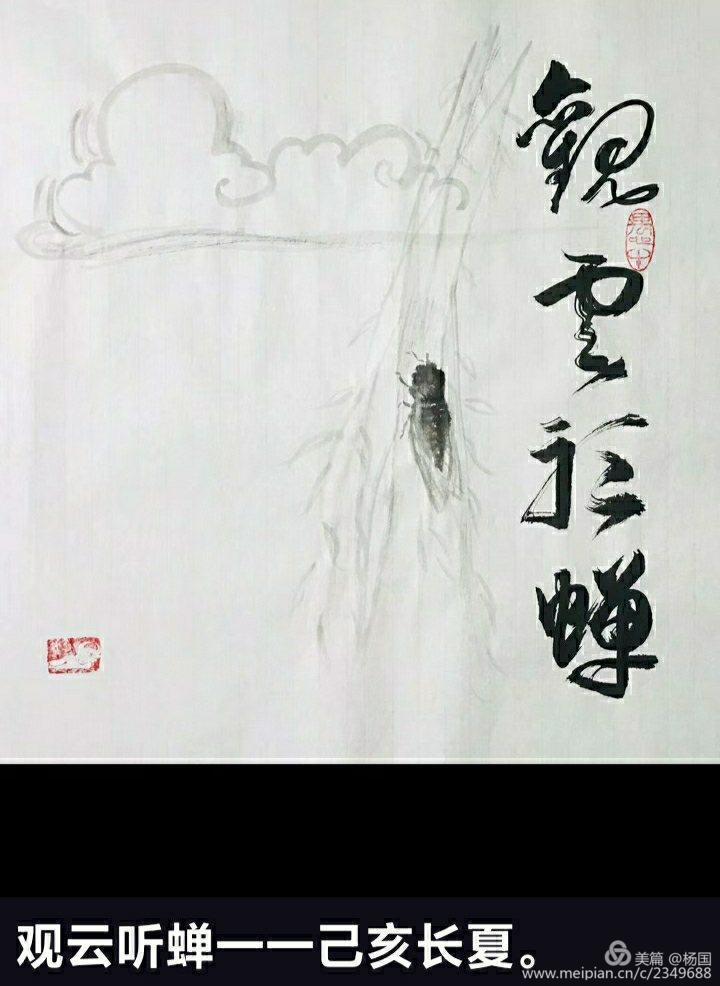 觀雲聽蟬
观云听蝉一一己亥长夏。
美篇 @杨国
www.meipian.cn/c/2349688